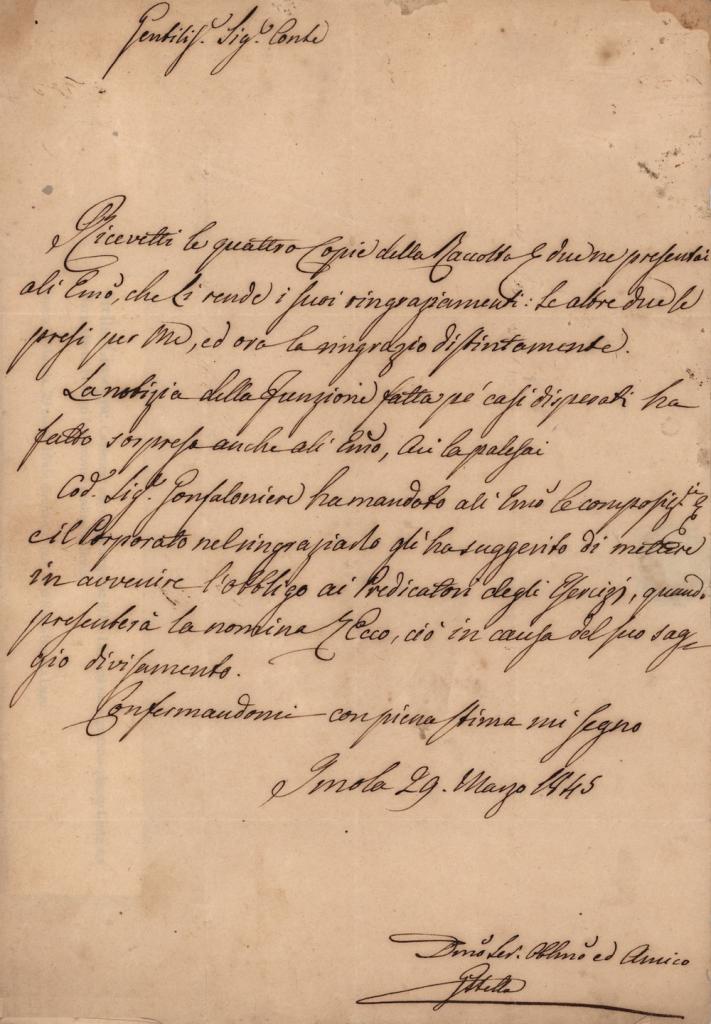 Gentilis.º Sig.r Conte
Ricevetti le quattro Copie della Raccolta, e due ne presentai
all'Emo, che Li rende i suoi ringraziamenti: Le altre due le
presi per Me, ed ora la ringrazio distintamente.
La notizia della Funzione fatta pe' casi disperati ha
fatto sorpresa anche all'Emo, cui la palesai
Cod.º Sig.r Gonfaloniere ha mandato all'Emo le composiz.ni
e il Porporato nel ringraziarlo gli ha suggerito di mettere
in avvenire l'obbligo ai Predicatori degli Esercizj, quand.
presenterà la nomina, ciò in causa del suo sag-
gio divisamento.
Confermandomi con piena stima mi segno
Imola 29. Marzo 1845
Dmo Ser. Obblmo ed Amico